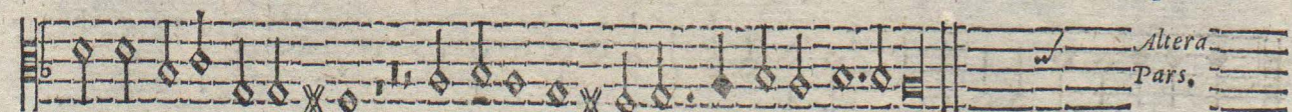 Altera
Pars.